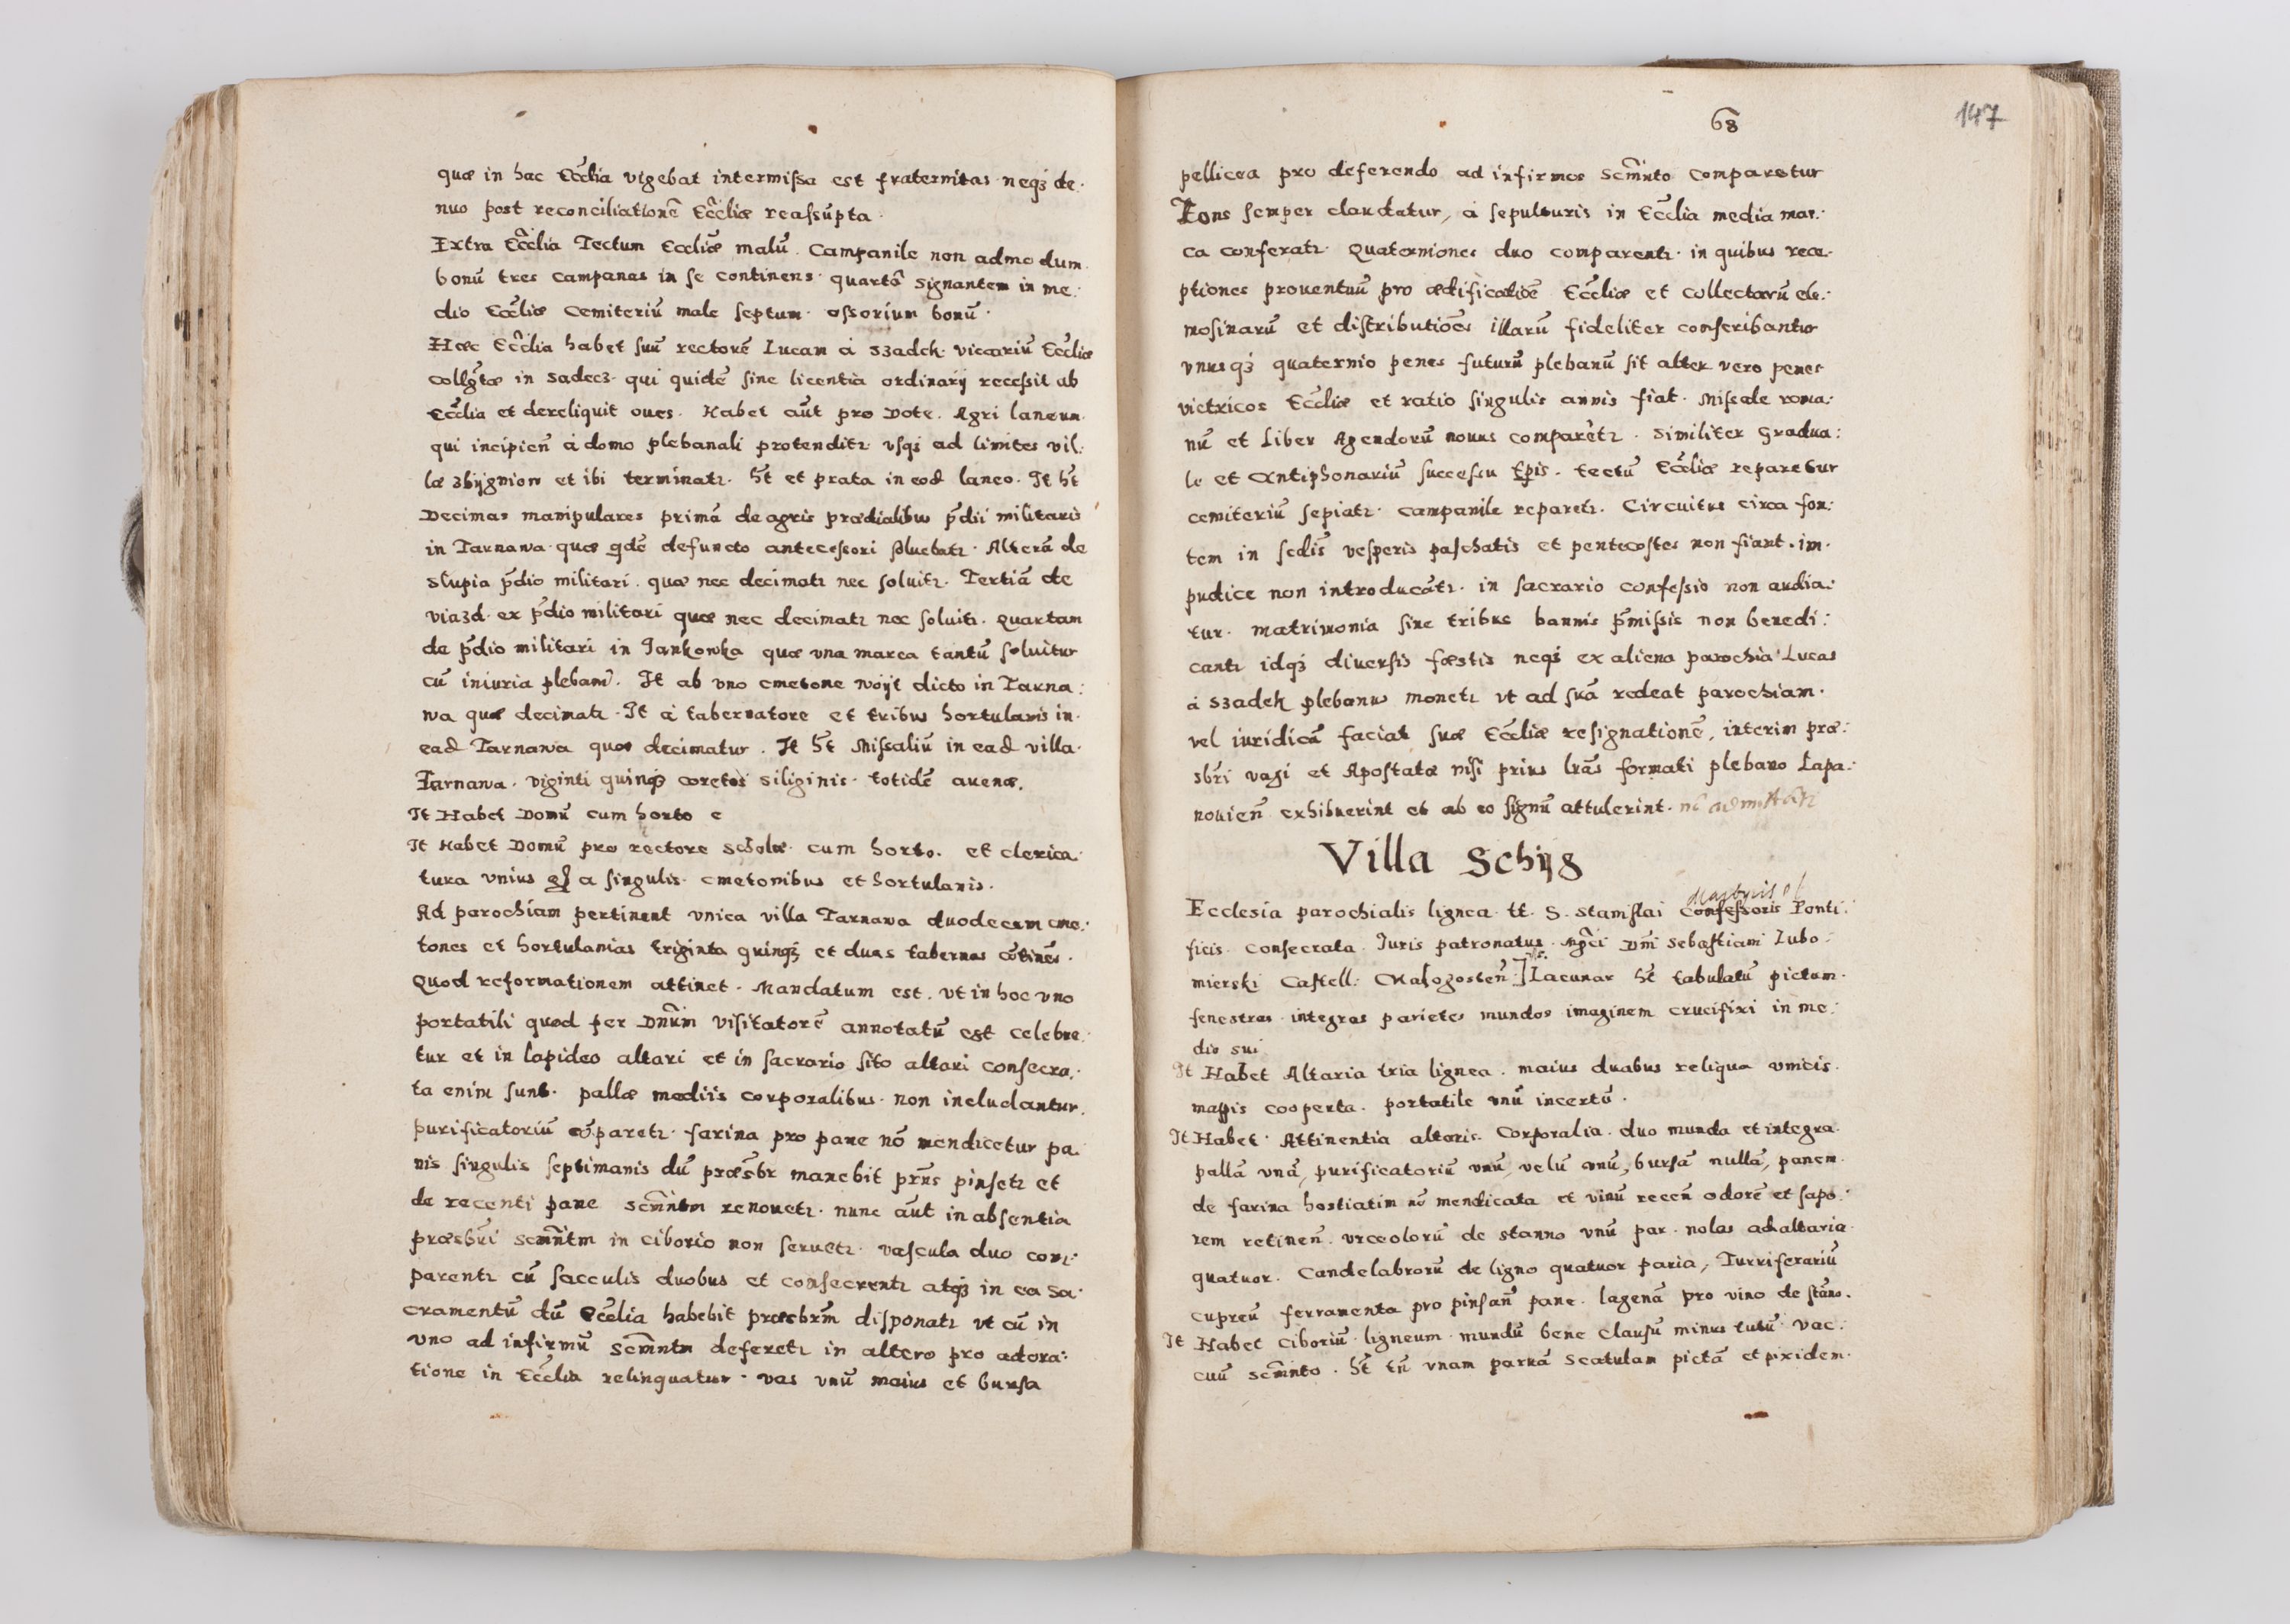 quæ in hac Eccłia vigebat intermissa est fraternitas neqȝ de:
nuo post reconciliationē Eccłiæ reassūpta.
Extra Eccłia Tectum Eccłiæ malū. Campanile non admodum
bonū tres campanas in se continens. quartā signantem in me:
dio Eccłiæ Cemiteriū male septum. ossorium bonū.
Hæc Eccłia habet suū rectorē Lucam à Szadek. viccariū Eccłiæ
Collgtæ in Sadecz. qui quidē sine licentia ordinarij recessit ab
Eccłia et dereliquit oues. Habet aūt pro Dote. Agri laneum
qui incipieñ à domo plebanali protenditr vsqȝ ad limites vil:
læ zbijgniow et ibi terminatr. ht et prata in eod laneo. It ht
Decimas manipulares primā de agris prædialibus pdii militaris
in Tarnawa quæ qdē defuncto antecessori soluebatr. Alterā de
Stupia pdio militari. quæ nec decimatr nec soluitr. Tertiā de
viazd. ex pdio militari quæ nec decimatr nec soluitr. Quartam
de pdio militari in Jankowka quæ vna marca tantū soluitur
cū iniuria plebani. It ab vno cmetone Woijt dicto in Tarna:
wa quæ decimatr. It à tabernatore et tribus hortulanis in
ead Tarnawa quæ decimatur. It ht Missaliū in ead villa
Tarnawa. viginti quinqȝ coretos siliginis. totidē auenæ.
It Habet Domū cum horto e
It Habet Domū pro rectore Scholæ cum horto. et clerica
tura vnius gs a singulis cmetonibus et hortulanis.
Ad parochiam pertinent vnica villa Tarnawa duodecem cme:
tones et hortulanias triginta quinqȝ et duas tabernas cōtinēs.
Quod reformationem attinet. Mandatum est. vt in hoc vno
portatili quod per Dnūm visitatorē annotatū est celebre:
tur et in lapideo altari et in sacrario sito altari consecra:
ta enim sunt. pallæ mediis corporalibus non includantur.
purificatoriū cōparetr. farina pro pane nō mendicetur pa:
nis singulis septimanis dū præsbr manebit prns pinsetr et
de recenti pane scmntm renouetr. nunc aūt in absentia
præsbri scmntm in ciborio non seruetr. vascula duo com:
parentr cū sacculis duobus et consecrentr atqȝ in ea Sa:
cramentū dū Eccłia habebit præsbrm disponatr vt cū in
vno ad infirmū scmntm deferetr in altero pro adora:
tione in Eccłia relinquatur. vas vnū maius et bursa
68
147
pellicea pro deferendo ad infirmos scmnto comparetur
Fons semper claudatur, à sepulturis in Eccłia media mar:
ca conferatr. Quaterniones duo comparentr. in quibus rece:
ptiones prouentuū pro ædificatiōē Eccłiæ et collectarū ele:
mosinarū et distributiōēs illarū fideliter conscribantur
vnusqȝ quaternio penes futurū plebanū sit alter vero penes
victricos Eccłiæ et ratio singulis annis fiat. Missale roma:
nū et Liber Agendorū nouus comparetr. Similiter Gradua:
le et Antiphonariū successu tpis. tectū Eccłiæ reparetur
cemiteriū sepiatr. campanile reparetr. Circuitus circa fon:
tem in sedis vesperis paschatis et pentecostes non fiant. im:
pudice non introducātr. in sacrario confessio non audia:
tur. matrimonia sine tribus bannis pmissis non benedi:
cantr idqȝ diuersis fæstis neqȝ ex aliena parochia. Lucas
à Szadek plebanus monetr vt ad suā redeat parochiam.
vel iuridicā faciat suæ Eccłiæ resignationē, interim præ:
sbri vagi et Apostatæ nisi prius lrās formati plebano Lapa:
nouieñ exhibuerint et ab eo signū attulerint. nō admittātr
Villa Schijg
Martyris et
Ecclesia parochialis lignea tt. S. Stanislai Confessoris Ponti:
ficis Consecrata. Juris patronatus. Mgci Dni Sebastiani Lubo:
mierski Castell: Małogosteñ] Lacunar ht tabulatū pictum.
fenestras integras parietes mundos imaginem crucifixi in me:
dio sui
It Habet Altaria tria lignea. maius duabus reliqua vnicis
mappis cooperta. portatile vnū incertū.
It Habet. Attinentia altaris. Corporalia duo munda et integra
pallā vnā, purificatoriū vnū, velū vnū, bursā nullā, panem
de farina hostiatim nō mendicata et vinū receñ odorē et sapo:
rem retineñ. vrceolorū de stanno vnū par. nolas ad altaria
quatuor. Candelabrorū de ligno quatuor paria, Turriferariū
cupreū ferramenta pro pinsañ pane. lagenā pro vino de stāno.
It Habet Ciboriū ligneum mundū bene clausū minus tutū vac:
cuū scmnto. ht tñ vnam paruā scatulam pictā et pixidem